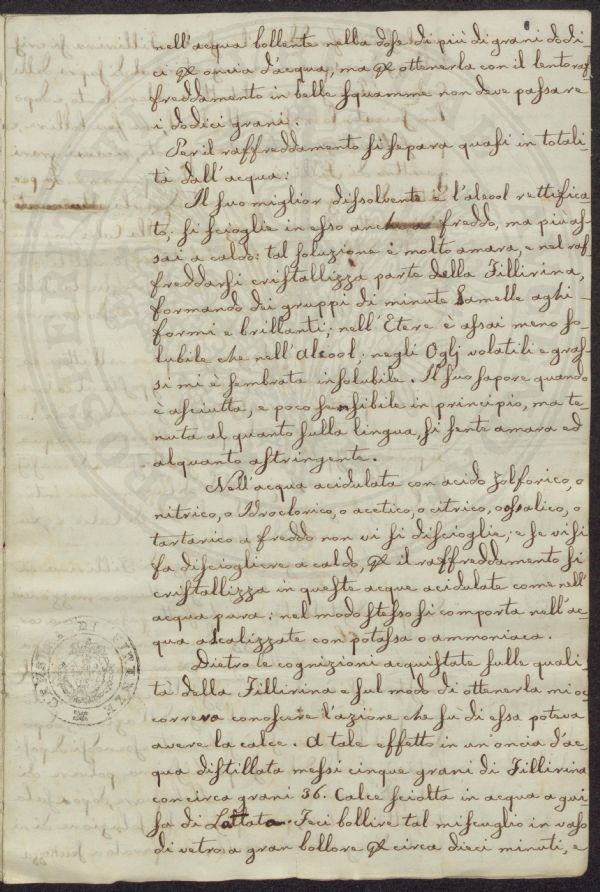 nell'acqua bollente nella dose di più di grani dodi-
ci p oncia d'acqua, ma p ottenerla con il lento raf
freddamento in belle squamme non deve passare
i, dodici grani.
Per il raffreddamento si separa quasi in totali-
tà dall'acqua:
Il suo miglior dissolvente è l'alcool rettifica
to; si scioglie in esso anche a freddo, ma più as-
sai a caldo: tal soluzione è molto amara, e nel raf-
freddarsi cristallizza parte della Fillirina,
formando dei gruppi di minute Lamelle aghi-
formi e brillanti; nell'Etere è assai meno so-
lubile che nell'alcool; negli Oglj volatili e gras-
si mi è sembrata insolubile. Il suo sapore quando
è asciutta, e poco sensibile in principio, ma te-
nuta al quanto sulla lingua, si sente amara ed
alquanto astringente.
Nell'acqua acidulata con acido zolforico, o
nitrico, o Idroclorico, o acetico, o citrico, ossalico, o
tartarico a freddo non vi si discioglie; e se vi si
fa disciogliere a caldo, p il raffreddamento si
cristallizza in queste acque acidulate come nell'
acqua pura: nel modo stesso si comporta nell'ac-
qua alcalizzate con potassa o ammoniaca.
Dietro le cognizioni acquistate sulle quali-
tà della Fillirina e sul modo di ottenerla mi oc-
correva conoscere l'azione che sù di essa poteva
avere la calce. A tale effetto in un'oncia d'ac
qua distillata messi cinque grani di Fillirina
con circa grani 36. Calce sciolta in acqua a gui-
sa di Lattata. Feci bollire tal miscuglio in vaso
di vetro a gran bollore p circa dieci minuti, e